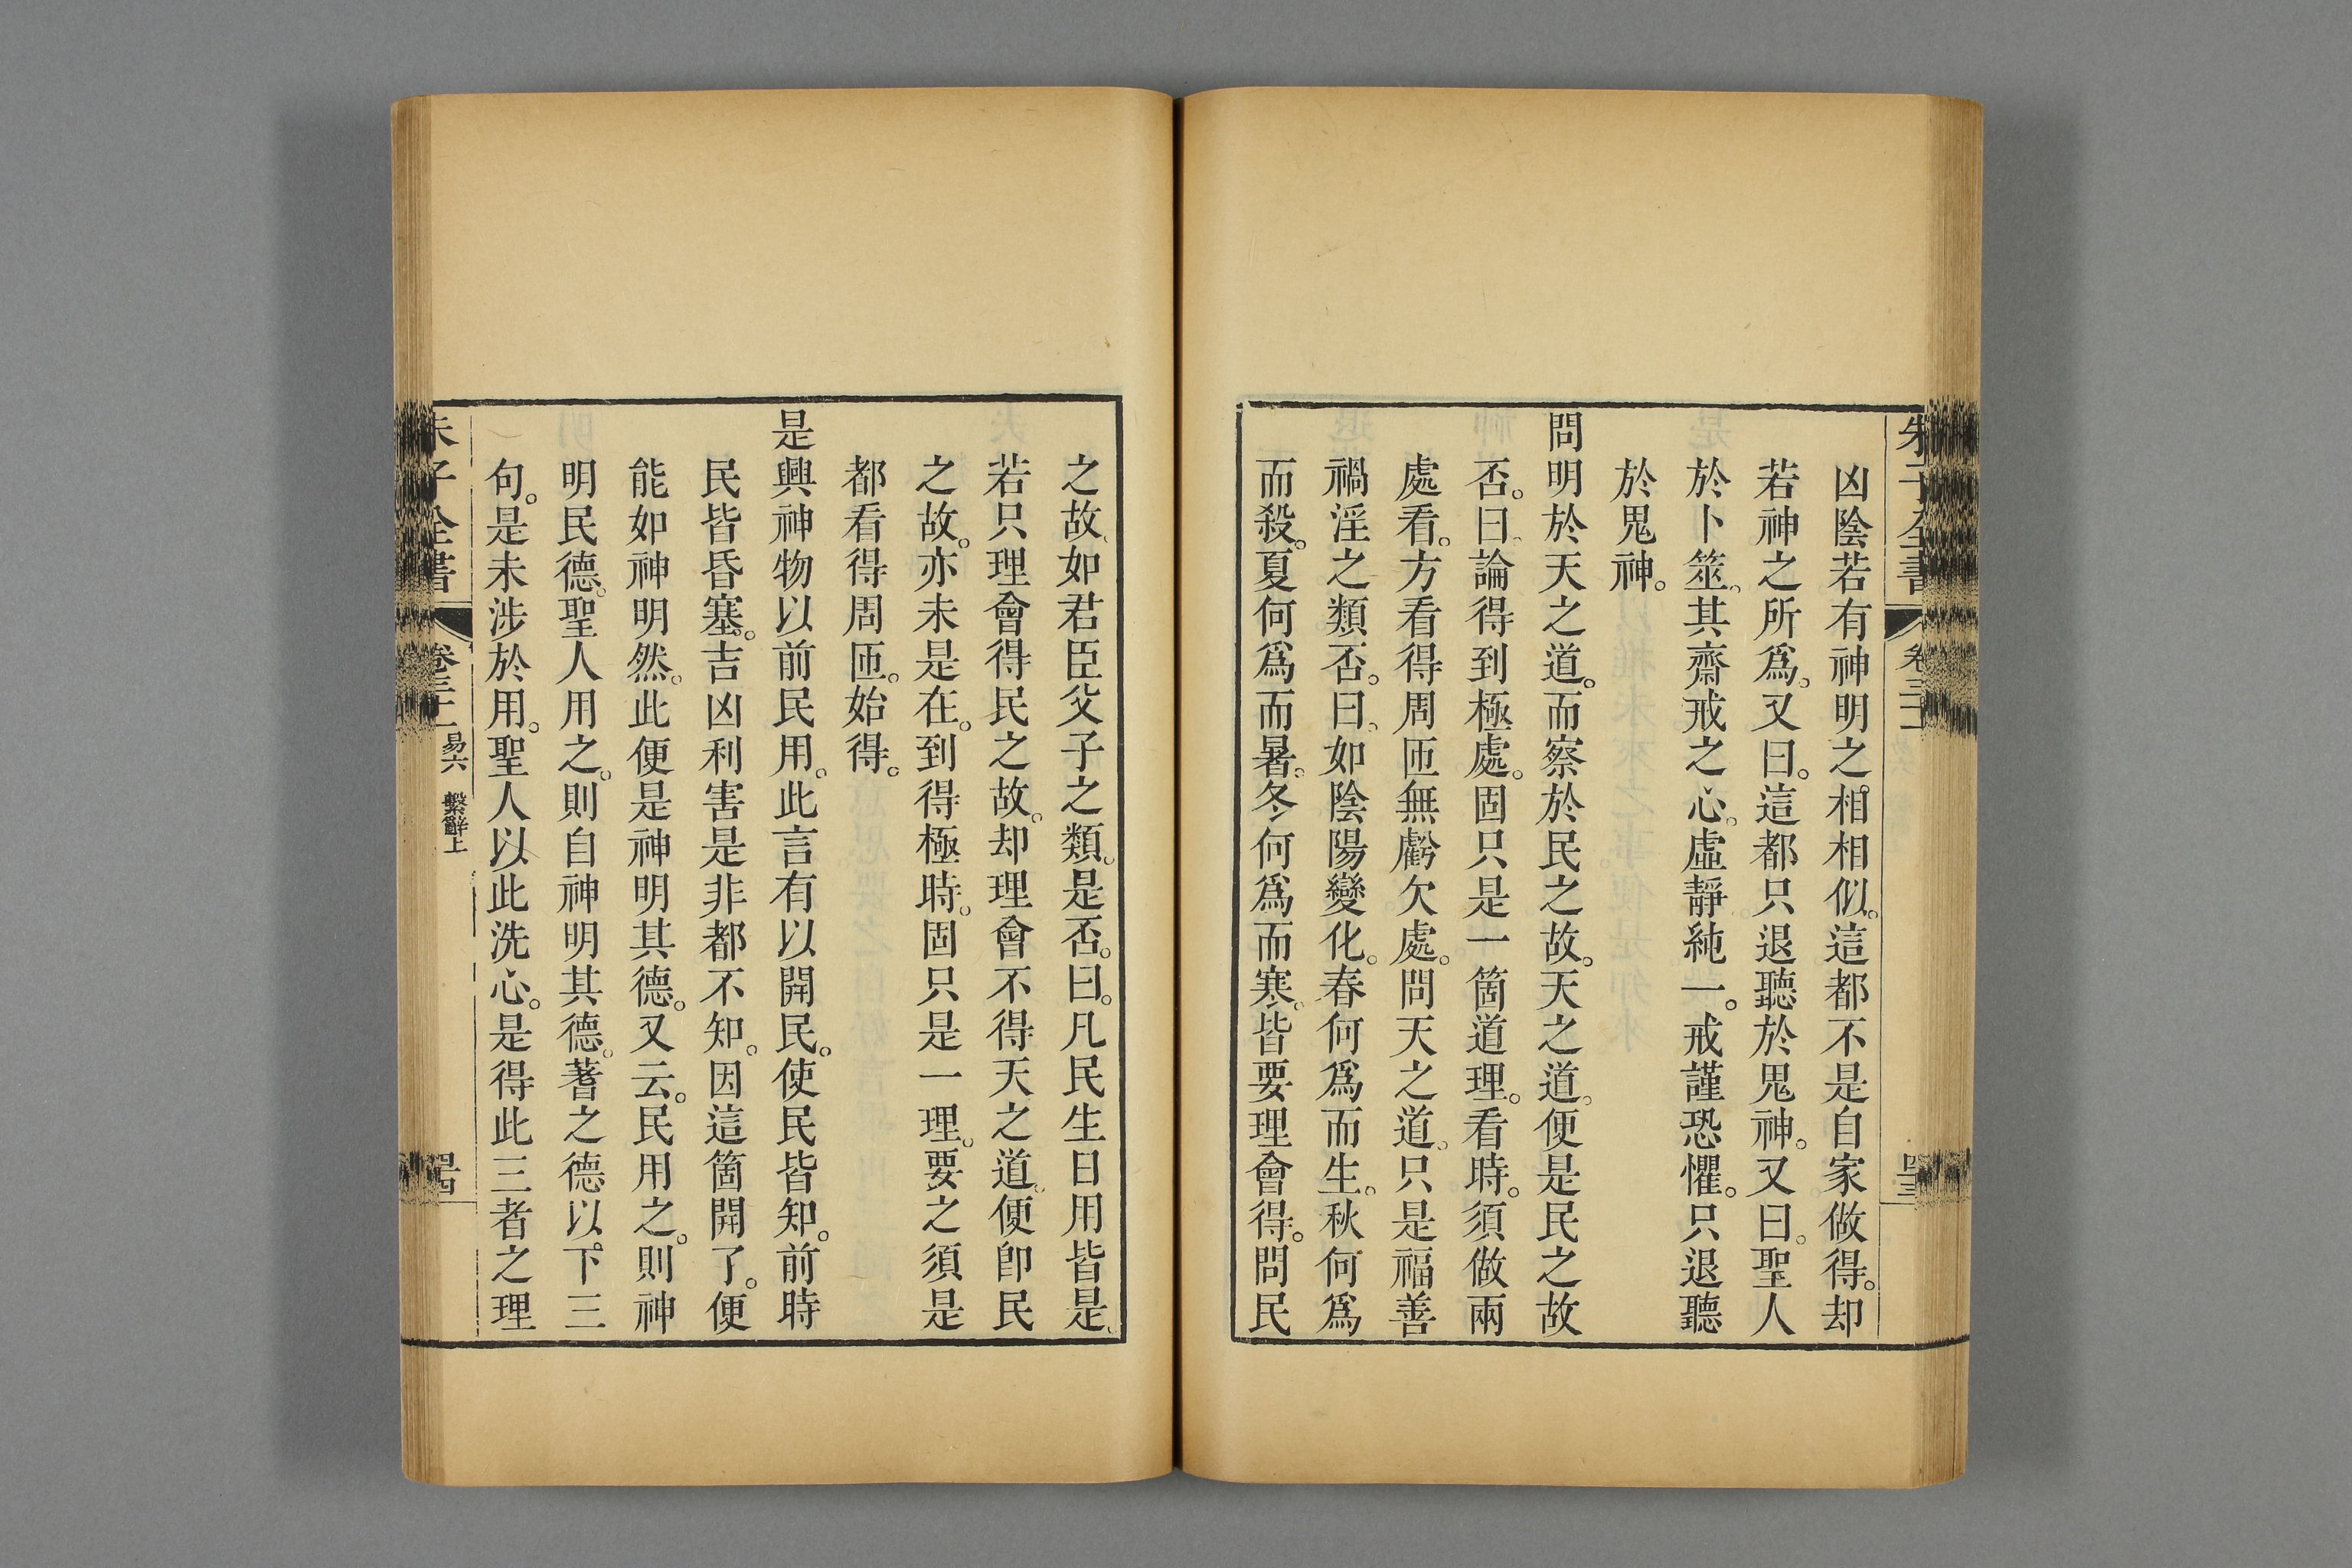 朱子全書 卷三十一 四十三
凶陰若有神明之相相似。這都不是自家做得。却
若神之所爲。又曰。這都只退聽於鬼神。又曰。聖人
於卜筮。其齋戒之心。虛靜純一。戒謹恐懼。只退聽
於鬼神。
問明於天之道。而察於民之故。天之道。便是民之故
否。曰。論得到極處。固只是一箇道理。看時。須做兩
處看。方看得周匝無虧欠處。問天之道。只是福善
禍淫之類否。曰。如陰陽變化。春何爲而生。秋何爲
而殺。夏何爲而暑。冬何爲而寒。皆要理會得。問民
之故。如君臣父子之類。是否。曰。凡民生日用皆是。
若只理會得民之故。却理會不得天之道。便卽民
之故。亦未是在。到得極時。固只是一理。要之須是
都看得周匝。始得。
是興神物以前民用。此言有以開民。使民皆知。前時
民皆昏塞。吉凶利害是非都不知。因這箇開了。便
能如神明然。此便是神明其德。又云。民用之。則神
明民德。聖人用之。則自神明其德。蓍之德以下三
句。是未涉於用。聖人以此洗心。是得此三者之理
朱子全書 卷三十一 易六 繫辭上 四十四